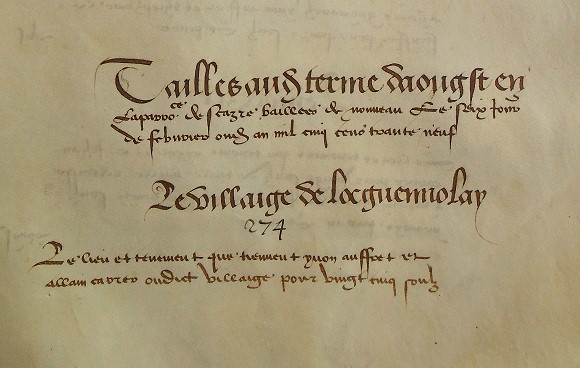 Tailles audit terme daougst en
la parroce de Scazre baillees de nouveau Le seix jour
de febvrier oudit an mil cinq cens trante neuf
Le villaige de locguenniolay
274
Le lieu et tenement que tiennent yvon auffret et
allain carrer oudict villaige pour vingt cinq soulz